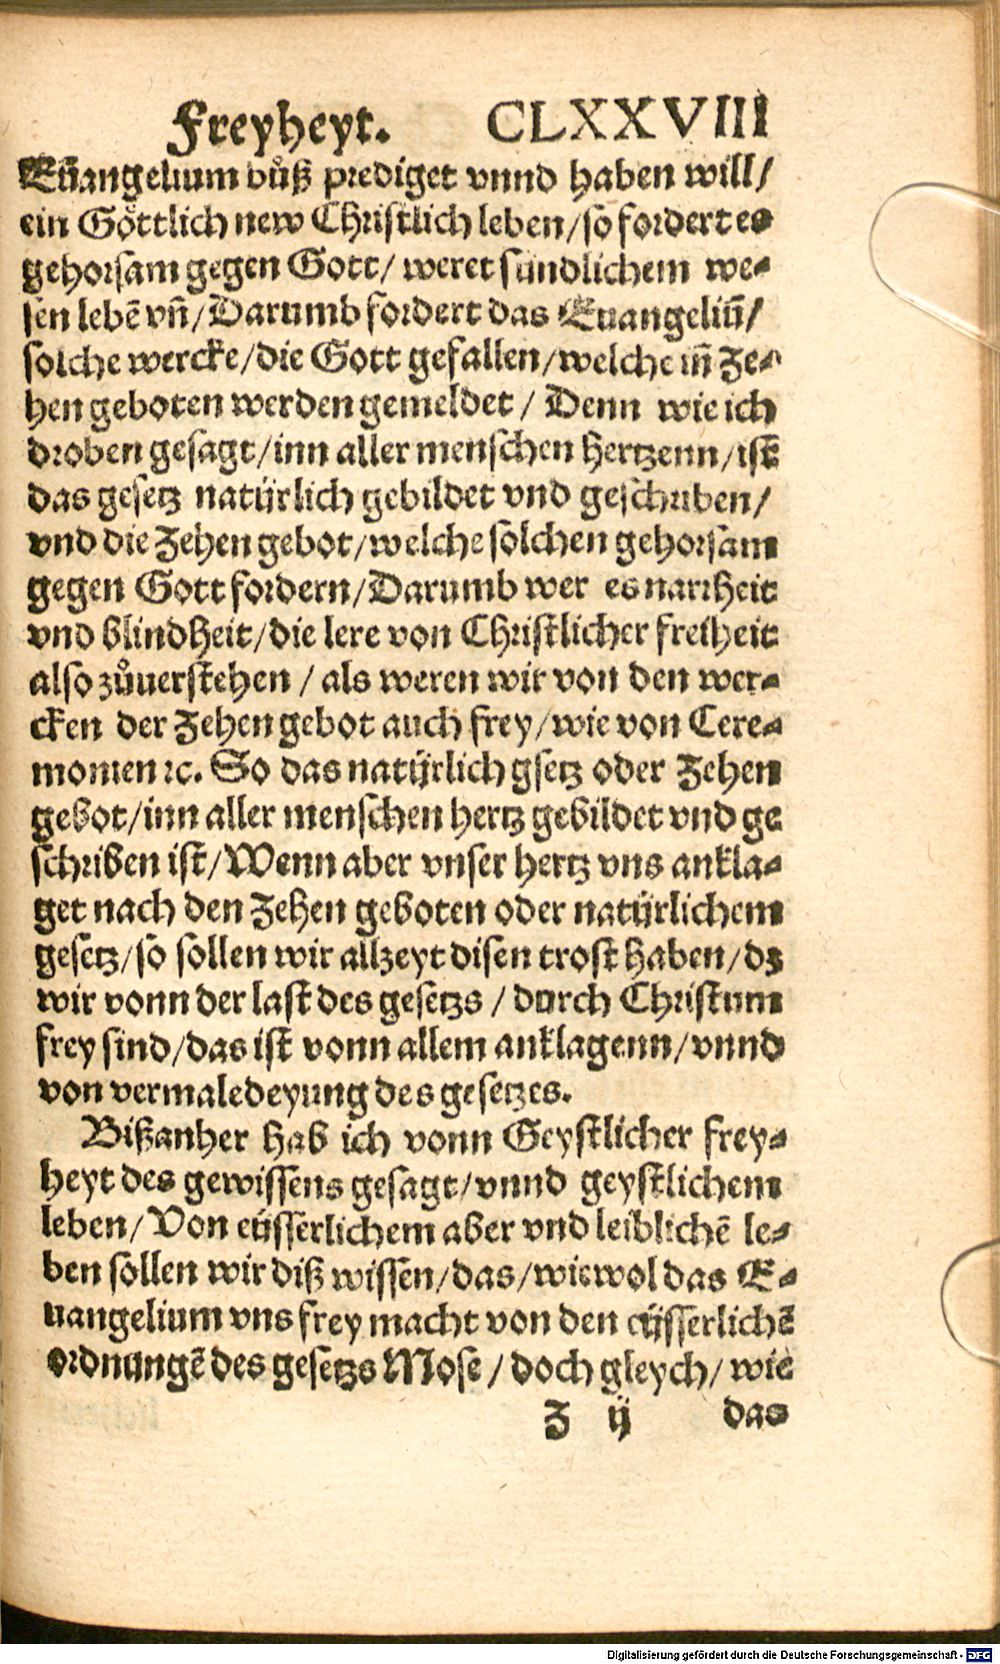 Freyheyt. CLXXVIII
Eũangelium bůß prediget vnnd haben will/
ein Göttlich new Christlich leben/so fordert es
gehorsam gegen Gott/ weret sündlichem we-
sen lebē vñ/Darumb fordert das Euangeliũ/
solche wercke/die Gott gefallen/welche iñ Ze-
hen geboten werden gemeldet/ Denn wie ich
droben gesagt/inn aller menschen hertzenn/ist
das gesetz natürlich gebildet vnd geschriben/
vnd die Zehen gebot/welche solchen gehorsam
gegen Gott fordern/Darumb wer es narrheit
vnd blindheit/die lere von Christlicher freiheit
also zůuerstehen/ als weren wir von den wer-
cken der Zehen gebot auch frey/wie von Cere-
monien ꝛc. So das natürlich gsetz oder Zehen
gebot/inn aller menschen hertz gebildet vnd ge
schriben ist/Wenn aber vnser hertz vns ankla-
get nach den Zehen geboten oder natürlichem
gesetz/so sollen wir allzeyt disen trost haben/dz
wir vonn der last des gesetzs/ durch Christum
frey sind/das ist vonn allem anklagenn/vnnd
von vermaledeyung des gesetzes.
Bißanher hab ich vonn Geystlicher frey-
heyt des gewissens gesagt/vnnd geystlichem
leben/Von eüsserlichem aber vnd leiblichē le-
ben sollen wir diß wissen/das/wiewol das E-
uangelium vns frey macht von den eüsserlichē
ordnungē des gesetzs Mose/ doch gleych/ wie
Z ij das
Digitalisierung gefördert durch die Deutsche Forschungsgemeinschaft - DFG